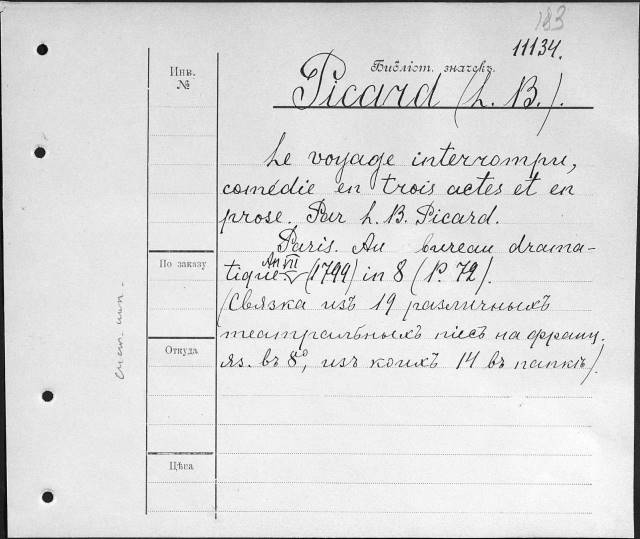 183
11134.
Библіот. значекъ.
Инв.
№
Picard (L. B.).
Le voyage interrompu,
comédie en trois actes et en
prose. Par L. B. Picard.
Paris. Au bureau drama-
tique An VII (1799) in 8 (P. 72).
(Связка изъ 19 различныхъ
театральныхъ піесъ на франц.
яз. въ 8º, изъ коихъ 14 въ папкѣ).
По заказу
Откуда
Цѣна